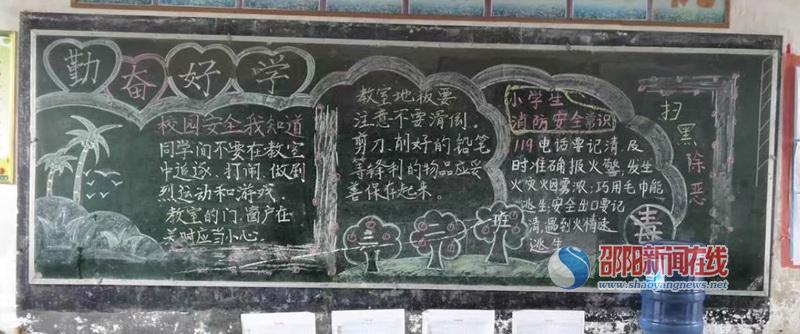 勤奋好学
校园安全我知道
同学间不要在教室
中追逐、打闹、做剧
烈运动和游戏.
教室的门、窗户在
关时应当小心.
教室地板要
注意不要滑倒。
剪刀、削好的铅笔
等锋利的物品应妥
善保存起来。
三二班
小学生
消防安全常识
119电话要记清,及
时准确报火警,发生
火灾烟雾浓,巧用毛巾能
逃生,安全出口要记
清,遇到火情速
逃生
扫黑除恶
毒
邵阳新闻在线
www.shaoyangnews.net